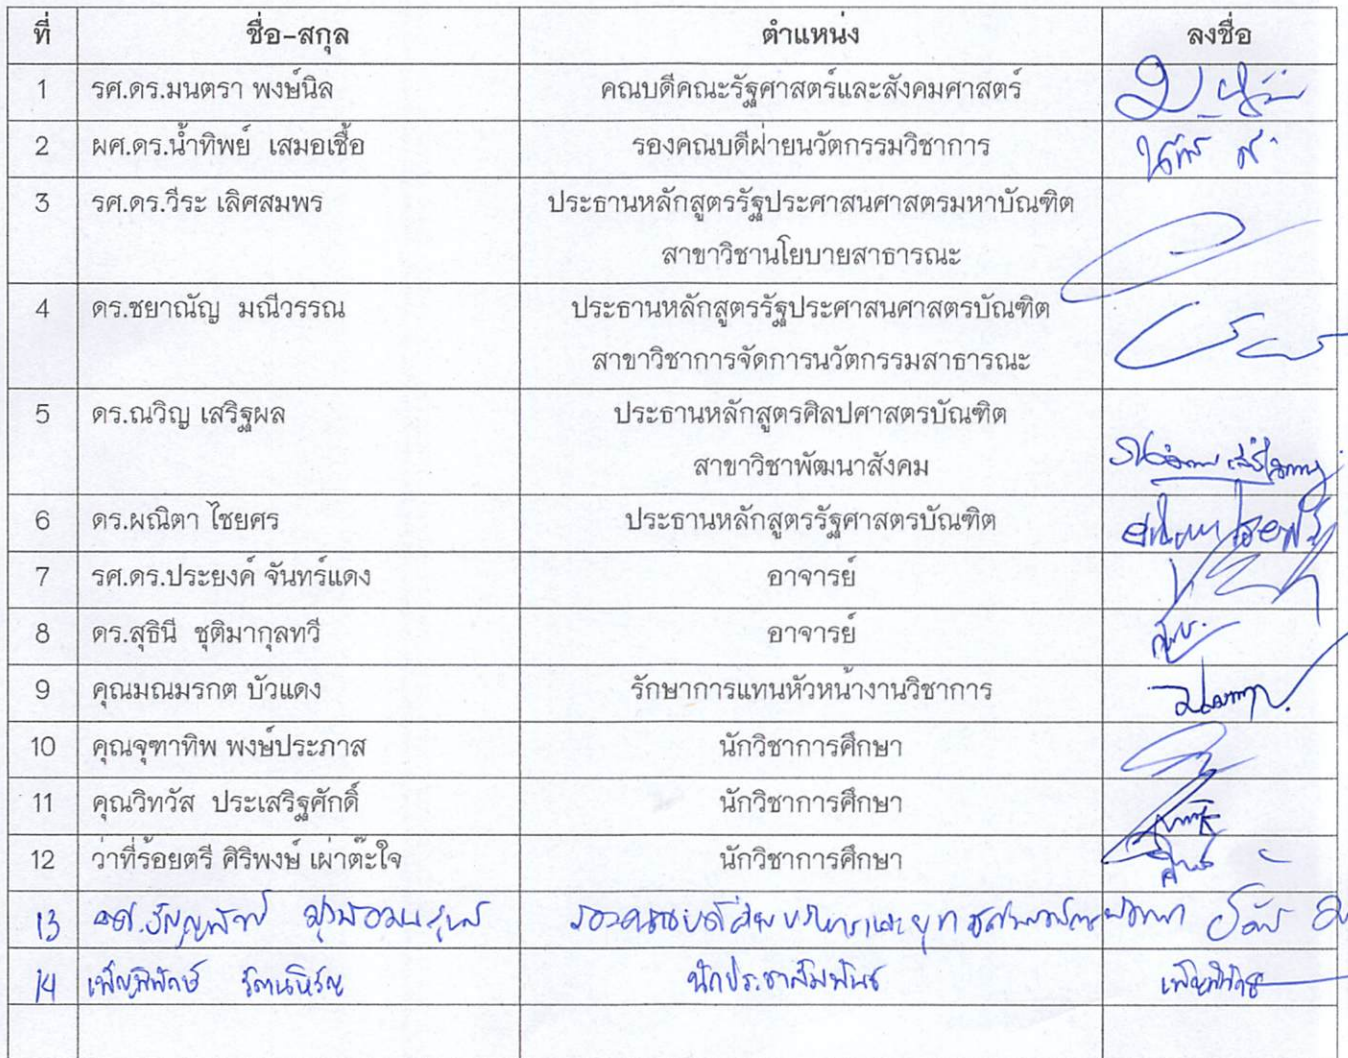 ที่ ชื่อ-สกุล ตำแหน่ง ลงชื่อ
1 รศ.ดร.มนตรา พงษ์นิล คณบดีคณะรัฐศาสตร์และสังคมศาสตร์
2 ผศ.ดร.น้ำทิพย์ เสมอเชื้อ รองคณบดีฝ่ายนวัตกรรมวิชาการ
3 รศ.ดร.วีระ เลิศสมพร ประธานหลักสูตรรัฐประศาสนศาสตรมหาบัณฑิต
สาขาวิชานโยบายสาธารณะ
4 ดร.ชยาณัญ มณีวรรณ ประธานหลักสูตรรัฐประศาสนศาสตรบัณฑิต
สาขาวิชาการจัดการนวัตกรรมสาธารณะ
5 ดร.ณวิญ เสริฐผล ประธานหลักสูตรศิลปศาสตรบัณฑิต
สาขาวิชาพัฒนาสังคม
6 ดร.ผณิตา ไชยศร ประธานหลักสูตรรัฐศาสตรบัณฑิต
7 รศ.ดร.ประยงค์ จันทร์แดง อาจารย์
8 ดร.สุธินี ชุติมากุลทวี อาจารย์
9 คุณมณมรกต บัวแดง รักษาการแทนหัวหน้างานวิชาการ
10 คุณจุฑาทิพ พงษ์ประภาส นักวิชาการศึกษา
11 คุณวิทวัส ประเสริฐศักดิ์ นักวิชาการศึกษา
12 ว่าที่ร้อยตรี ศิริพงษ์ เผ่าต๊ะใจ นักวิชาการศึกษา
13
14 เพ็ญพิพักษ์ นักประชาสัมพันธ์